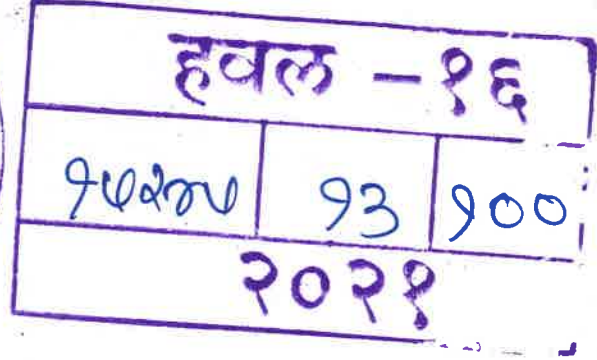 हवल -१६
१५२४५ १३ १००
२०२१